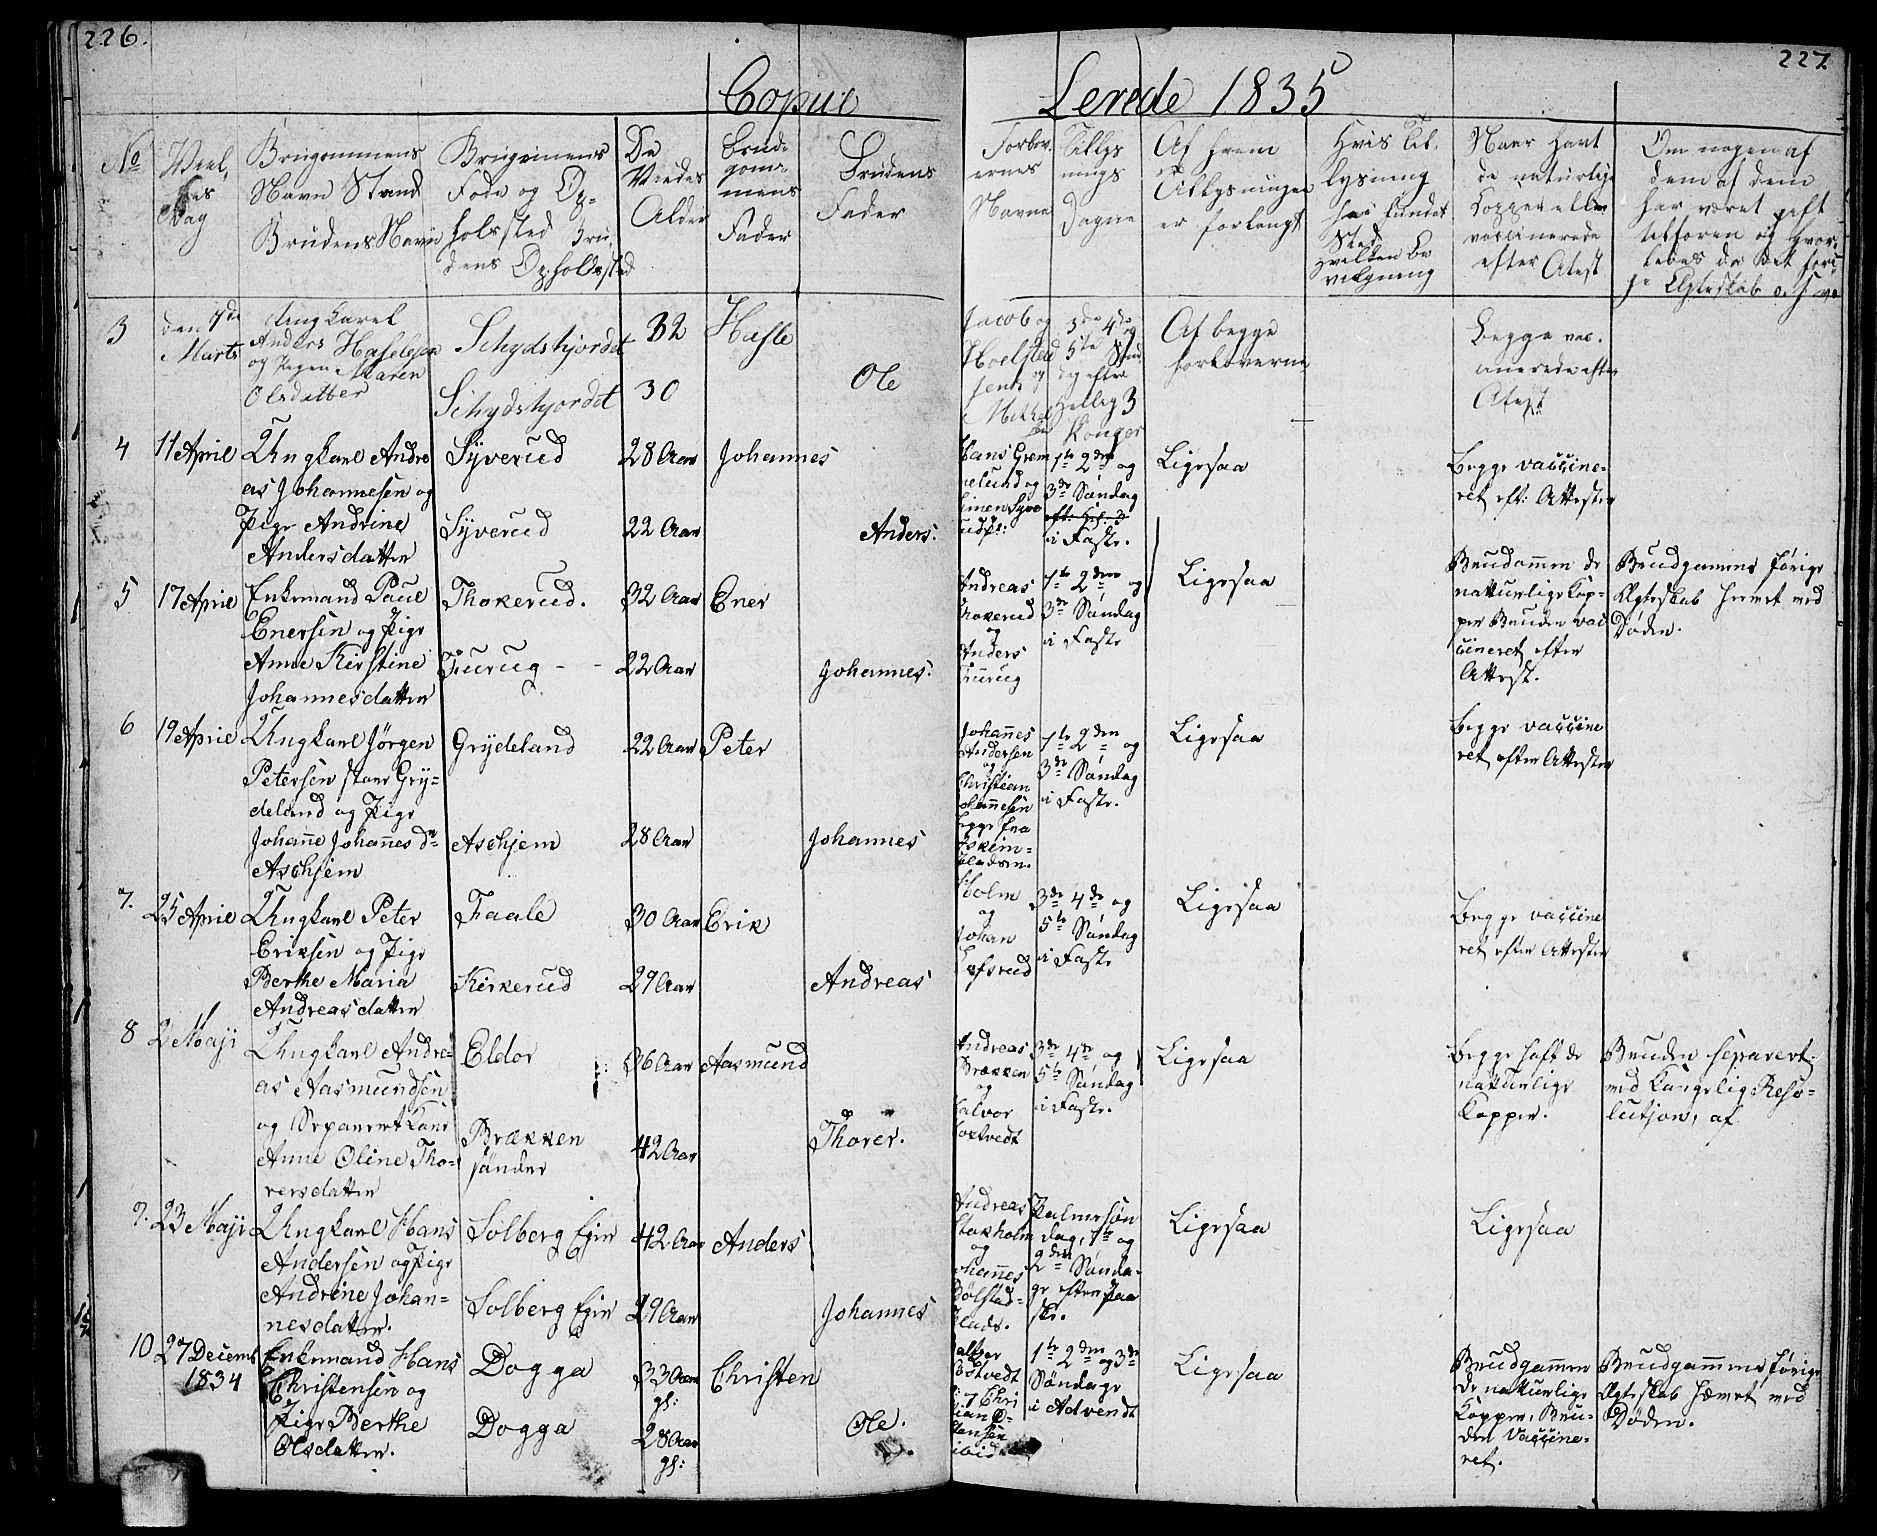 226.
227.
Copule
Lerede 1835
No
Viel,
ses
Dag
Brugommens
Navn Stand
Brudens Navn
Brugomens
Fode og Op=
holssted Bru,
dens Opholdssted
De
Viedes
Alder
Brud.
gom.
mens
Fader
Brudens
Fader
Forlov.
ernes
Navne
Tillys
nings
Dagne
Af hvem
Tillysningen
er forlangt
Hvis Til,
lysning
har fundet
Sted
hvilken Be
vilgning
Naar havt
de naturlige
Kopper eller
vaccinerede
efter Atest
Om nogen af
dem af dem
har været gift
tilforen og hvor,
ledes da det fori
ge Ægteskab
3
den 7de
Marts
Ungkarel
Anders Haslesen
og Pigen Maren
Olsdatter
Schydshjordet
Schydshjordet
32
30
Hasle
Ole
Jacob og
Hoelstad
Jens og
3de 4de og
5te Søn
dag efter
Hellig 3
Konger
Af begge
forloverne
Begge vac.
inerede efter
Atest
4
11 April
Ungkarl Andre
as Johannesen og
Pige Andrine
Andersdatter
Syverud
Syverud
28 Aar
22 Aar
Johannes
Anders:
Hans Grem
1te 2den og
3de Søndag
i Faste.
Ligesaa
Begge vaccine=
ret eft: Attester
5
17 April
Enkemand Paul
Enersen og Pige
Anne Kirstine
Johannesdatter
Thokerud.
Fuurug - -
32 Aar
22 Aar
Ener
Johannes:
Andreas
Thokerud
og
Anders
Fuurug
1te 2den og
3de Søndag
i Faste
Ligesaa
Brudgommen de
naturlige Kop=
per Bruden vac
cineret efter
Attest.
Brudgomens forige
Ægteskab hævet ved
Døden.
6
19 April
Ungkarl Jørgen
Petersen store Gry=
deland og Pige
Johanne Johannesdr
Aschjem
Grydeland
Aschjem
22 Aar
28 Aar
Peter
Johannes
Johannes
Andersen
og
Christian
Johannesen
begge fra
Askim=
Pladsen.
1te 2den og
3de Søndag
i Faste.
Ligesaa
Begge vaccine
ret efter Attester
7.
25 April
Ungkarl Peter
Eriksen og Pige
Berthe Maria
Andreasdatter
Faale
Kirkerud
30 Aar
29 Aar
Erik
Andreas
Holm
og
Johan
3de 4de og
5te Søndag
i Faste
Ligesaa
Begge vaccine
ret efter Attester
8
2 Maji
Ungkarl Andre=
as Aasmundsen
og Separert Kone
Anne Oline Tho=
rersdatter
Eldor
Brækken
søndre
36 Aar
42 Aar
Aasmund
Thorer.
Andreas
Brækken
og
Halvor
3de 4de og
5te Søndag
i Faste.
Ligesaa
Begge haft de
naturlige
Kopper.
Bruden separert
ved Kongelig Reso=
lutjon, af
9.
23 Maji
Ungkarl Hans
Andersen og Pige
Andrine Johan=
nesdatter.
Solberg Eier
Solberg Eier
42 Aar
29 Aar
Anders
Johannes
Andreas
Stokholm
og
Johannes
Dølstad=
Plads.
Palmesøn
dag, 1te og
2den Sønda=
ge efter Paa
ske.
Ligesaa
Ligesaa
10
27 Decemb
1834
Enkemand Hans
Christensen og
Pige Berthe
Olsdatter.
Dogga
Dogga
33 Aar
gl:
28 Aar
gl:
Christen
Ole.
Hansen
ibid.
1te 2den og 3de
Søndage
i Advendt
Ligesaa
Brudgammen
de naturlige
Kopper, Bru=
den Vaccine=
ret.
Brudgammens forige
Ægteskab hævet ved
Døden.